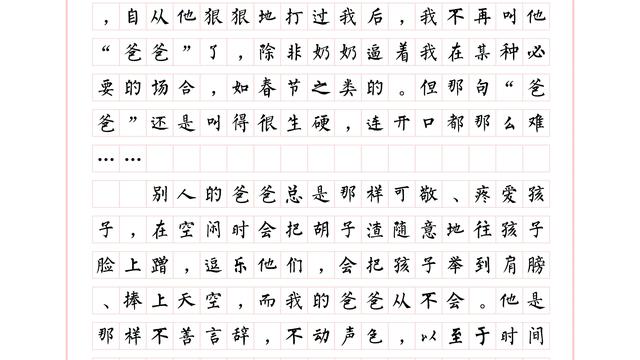 ，自从他狠狠地打过我后，我不再叫他
“爸爸”了，除非奶奶逼着我在某种必
要的场合，如春节之类的。但那句“爸
爸”还是叫得很生硬，连开口都那么难
……
别人的爸爸总是那样可敬、疼爱孩
子，在空闲时会把胡子渣随意地往孩子
脸上蹭，逗乐他们，会把孩子举到肩膀
、捧上天空，而我的爸爸从不会。他是
那样不善言辞，不动声色，以至于时间